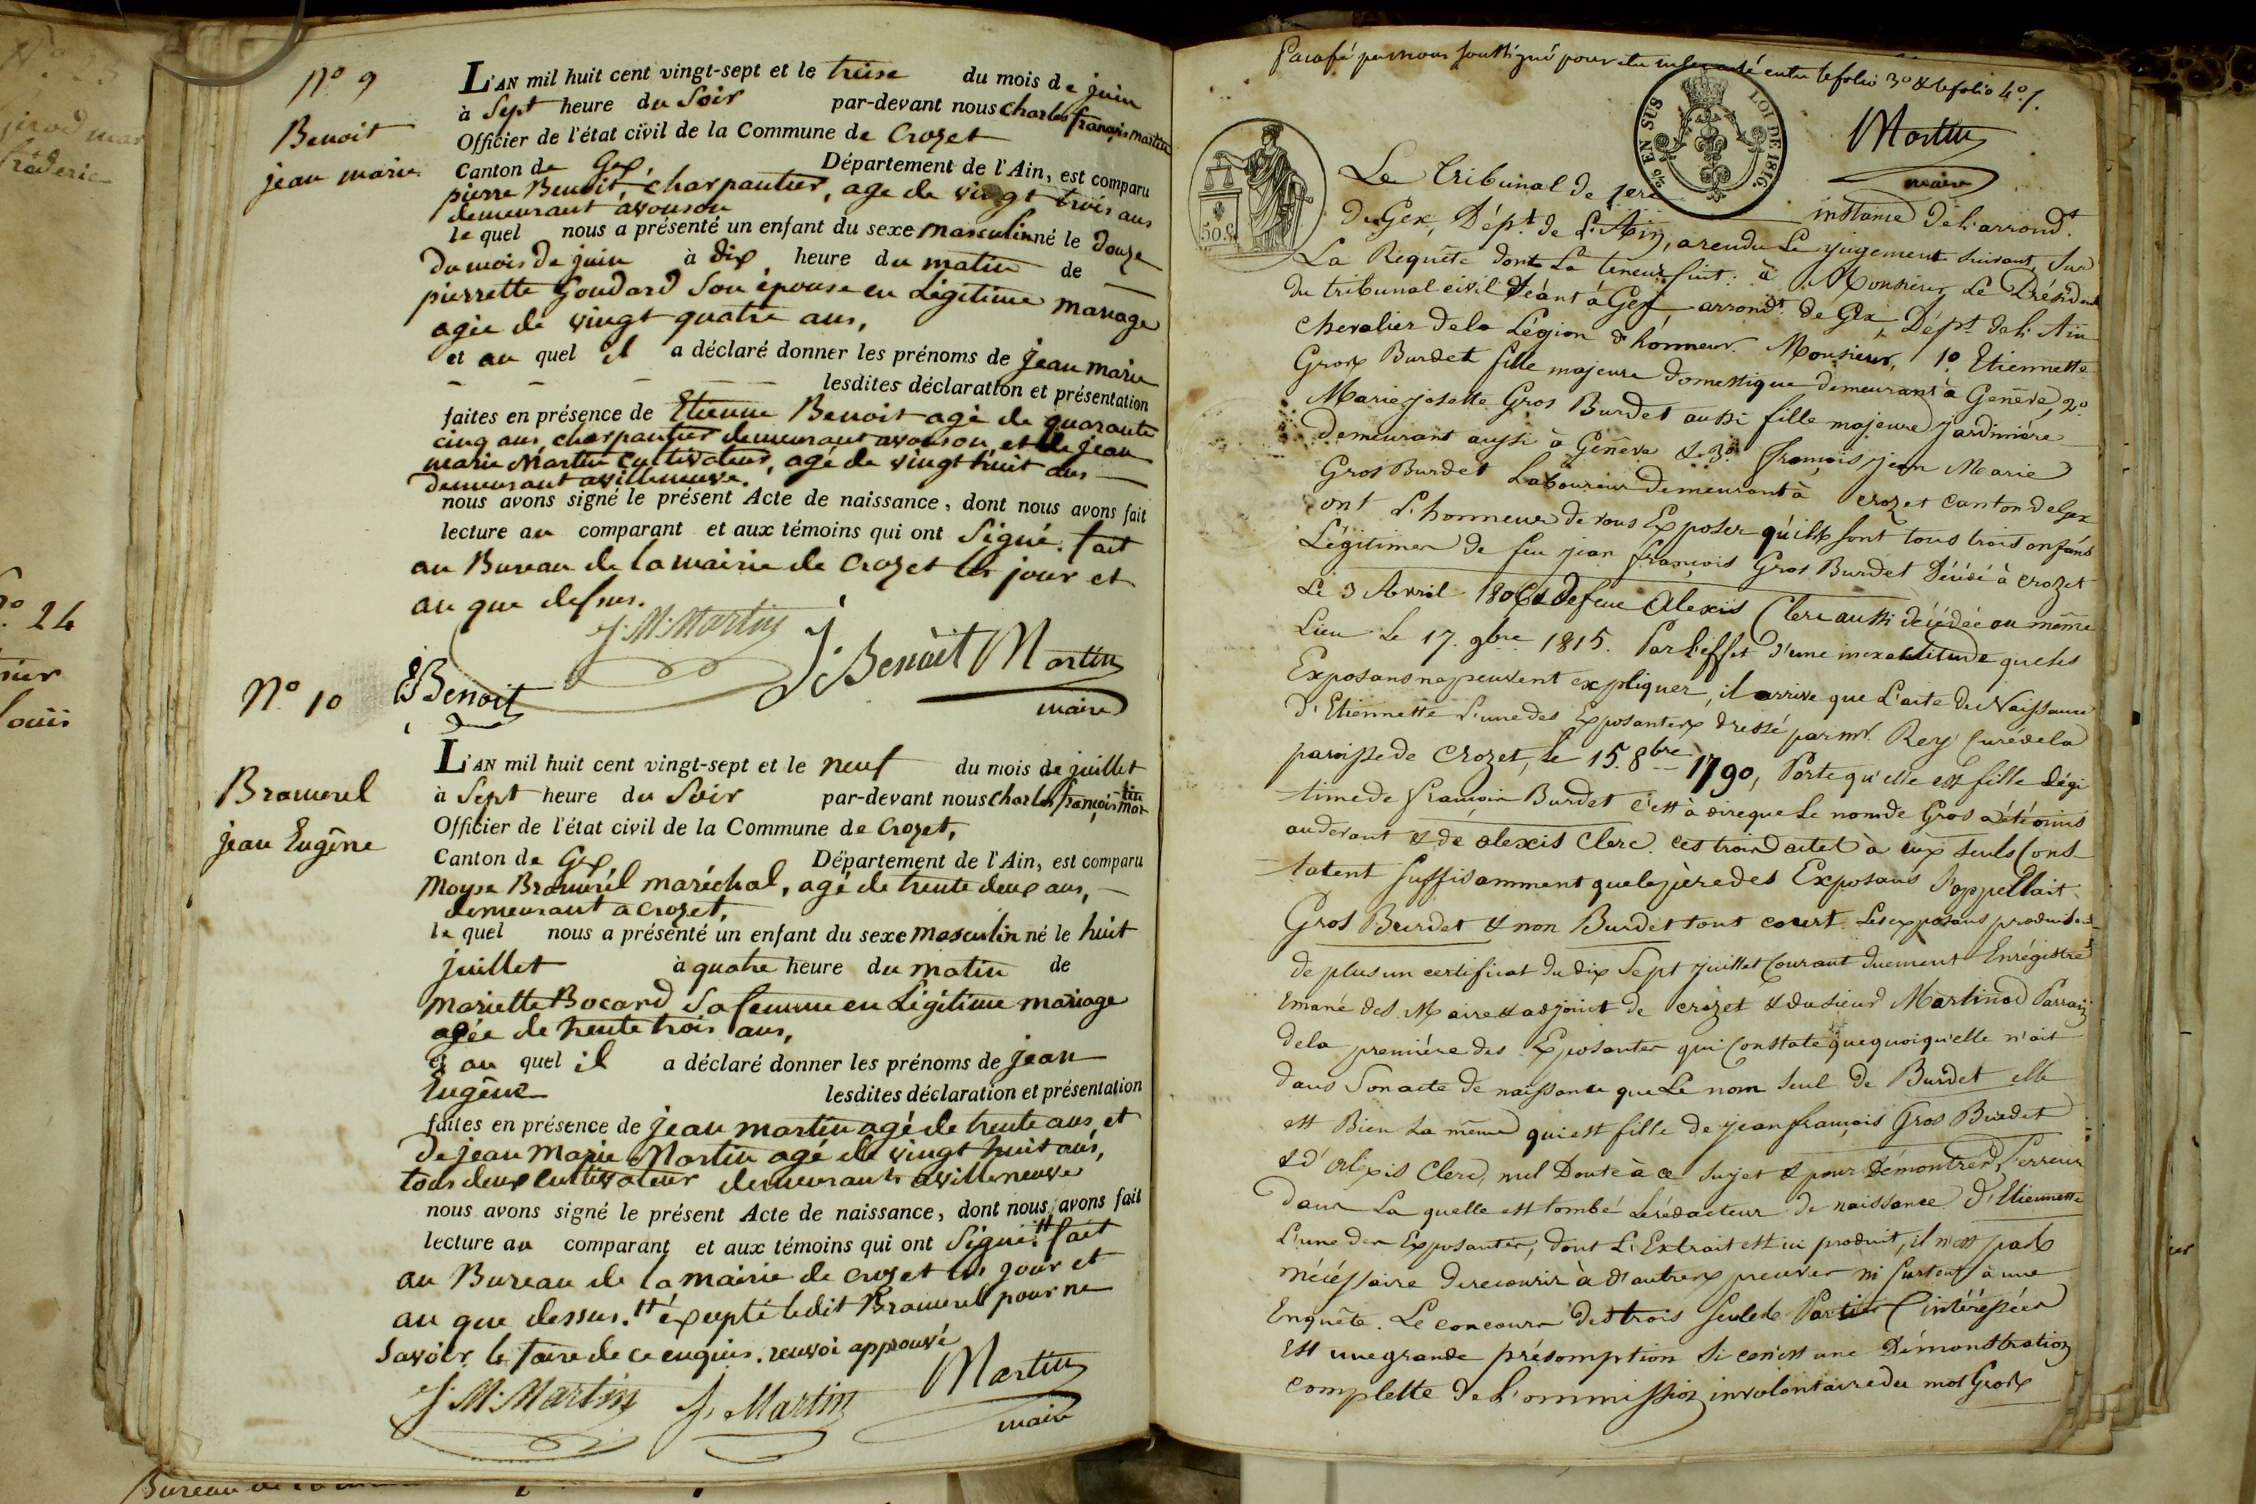 N.º 9
Benoit
jean marie
L'AN mil huit cent vingt-sept et le treise du mois de juin
à Sept heure du Soir par-devant nous Charles françois martin
Officier de l'état civil de la Commune de Crozet
Canton de Gex, Département de l'Ain, est comparu
pierre Benoit, charpantier, age de vingt trois ans
demeurant avouson
le quel nous a présenté un enfant du sexe masculin né le Douze
du mois de juin à dix heure du matin de
pierrette Goudard Son épouse en Légitime mariage
agée de vingt quatre ans,
et au quel il a déclaré donner les prénoms de jean marie
lesdites déclaration et présentation
faites en présence de Etienne Benoit agé de quarante
cinq ans, charpantier demeurant avouson, et de jean
marie Martin cultivateur, agé de vingt huit ans
demeurant avilleneuve.
nous avons signé le présent Acte de naissance, dont nous avons fait
lecture au comparant et aux témoins qui ont Signé. fait
au Bureau de la mairie de Crozet les jour et
an que dessus.
J. M. Martin J. Benoit Martin
maire
E Benoit
N.º 10
Bramerel
jean Eugêne
L'AN mil huit cent vingt-sept et le neuf du mois de juillet
à Sept heure du Soir par-devant nous Charles françois mar-
tin
Officier de l'état civil de la Commune de Crozet,
Canton de Gex Département de l'Ain, est comparu
Moyse Bramerel maréchal, agé de trente deux ans,
demeurant a crozet,
le quel nous a présenté un enfant du sexe masculin né le huit
juillet à quatre heure du matin de
Mariette Bocard Sa femme en Légitime mariage
agée de trente trois ans,
et au quel il a déclaré donner les prénoms de jean
Eugêne lesdites déclaration et présentation
faites en présence de jean martin agé de trente ans, et
De jean Marie Martin agé de vingt huit ans,
tous deux cultivateur demeurants avilleneuve
nous avons signé le présent Acte de naissance, dont nous avons fait
lecture au comparant et aux témoins qui ont Signé. fait
au Bureau de la mairie de Crozet les jour et
an que dessus. excepté ledit Bramerel pour ne
Savoir le faire de ce enquis. renvoi approuvé
J. M. Martin J. Martin Martin
maire
Parafé par nous soussigné pour etre intercalé entre le folio 3º & le folio 4º.
Martin
maire
EN SUS LOI DE 1816.
50 c.
Le Tribunal de 1ere instance de l'arrond.t
De Gex, Dép.t de L'Ain, a rendu Le jugement Suivant, Sur
La Requête dont La teneur suit: à Monsieur Le Président
du tribunal civil Séant à Gex, arrond.t de Gex, Dép.t de l'Ain
Chevalier de la Légion d'honneur. Monsieur, 1º Etiennette
Gros Burdet fille majeure domestique demeurant à Genêve, 2º
Marie josette Gros Burdet aussi fille majeure jardinière
Demeurant aussi à Genêve & 3º françois jean Marie
Gros Burdet Laboureur demeurant à crozet canton de Gex
ont L'honneur de vous Exposer qu'ils sont tous trois enfáns
Légitimes de feu jean françois Gros Burdet Décédé à crozet
Le 3 Avril 1806 & de feue Alexis Clerc aussi décédée au même
Lieu Le 17. 9bre 1815. Par l'effet d'une inexactitude que les
Exposans ne peuvent expliquer, il arrive que L'acte de Naissance
d'Etiennette L'une des Exposantes dressé par mr. Rey Curé de la
paroisse de Crozet, Le 15. 8bre 1790, Porte qu'elle est fille Légi
-time de françois Burdet c'est à dire que Le nom de Gros a été omis
au devant & de alexis Clerc. ces trois actes à eux seuls Cons-
-tatent suffisamment que le père des Exposans s'appellait
Gros Burdet & non Burdet tout court. Les exposans produisent
de plus un certificat du dix Sept juillet Courant duement Enrégistré
Emané des Maire & adjoint de crozet & du sieur Martinod Parrain
de la première des Exposantes qui Constate que quoiqu'elle n'ait
dans Son acte de naissance que Le nom seul de Burdet elle
est Bien La même qui est fille de jean françois Gros Burdet
& d'alexis Clerc, nul Doute à ce Sujet & pour Démontrer L'erreur
dans La quelle est tombé Le rédacteur de naissance d'Etiennette
L'une des Exposantes, dont L'Extrait est ici produit, il n'est pas
nécéssaire de recourir à d'autres preuves ni surtout à une
Enquête. Le concours des trois seules Parties intéressées
Est une grande présomption si ce n'est une Démonstration
complette de L'ommission involontaire du mot Gros